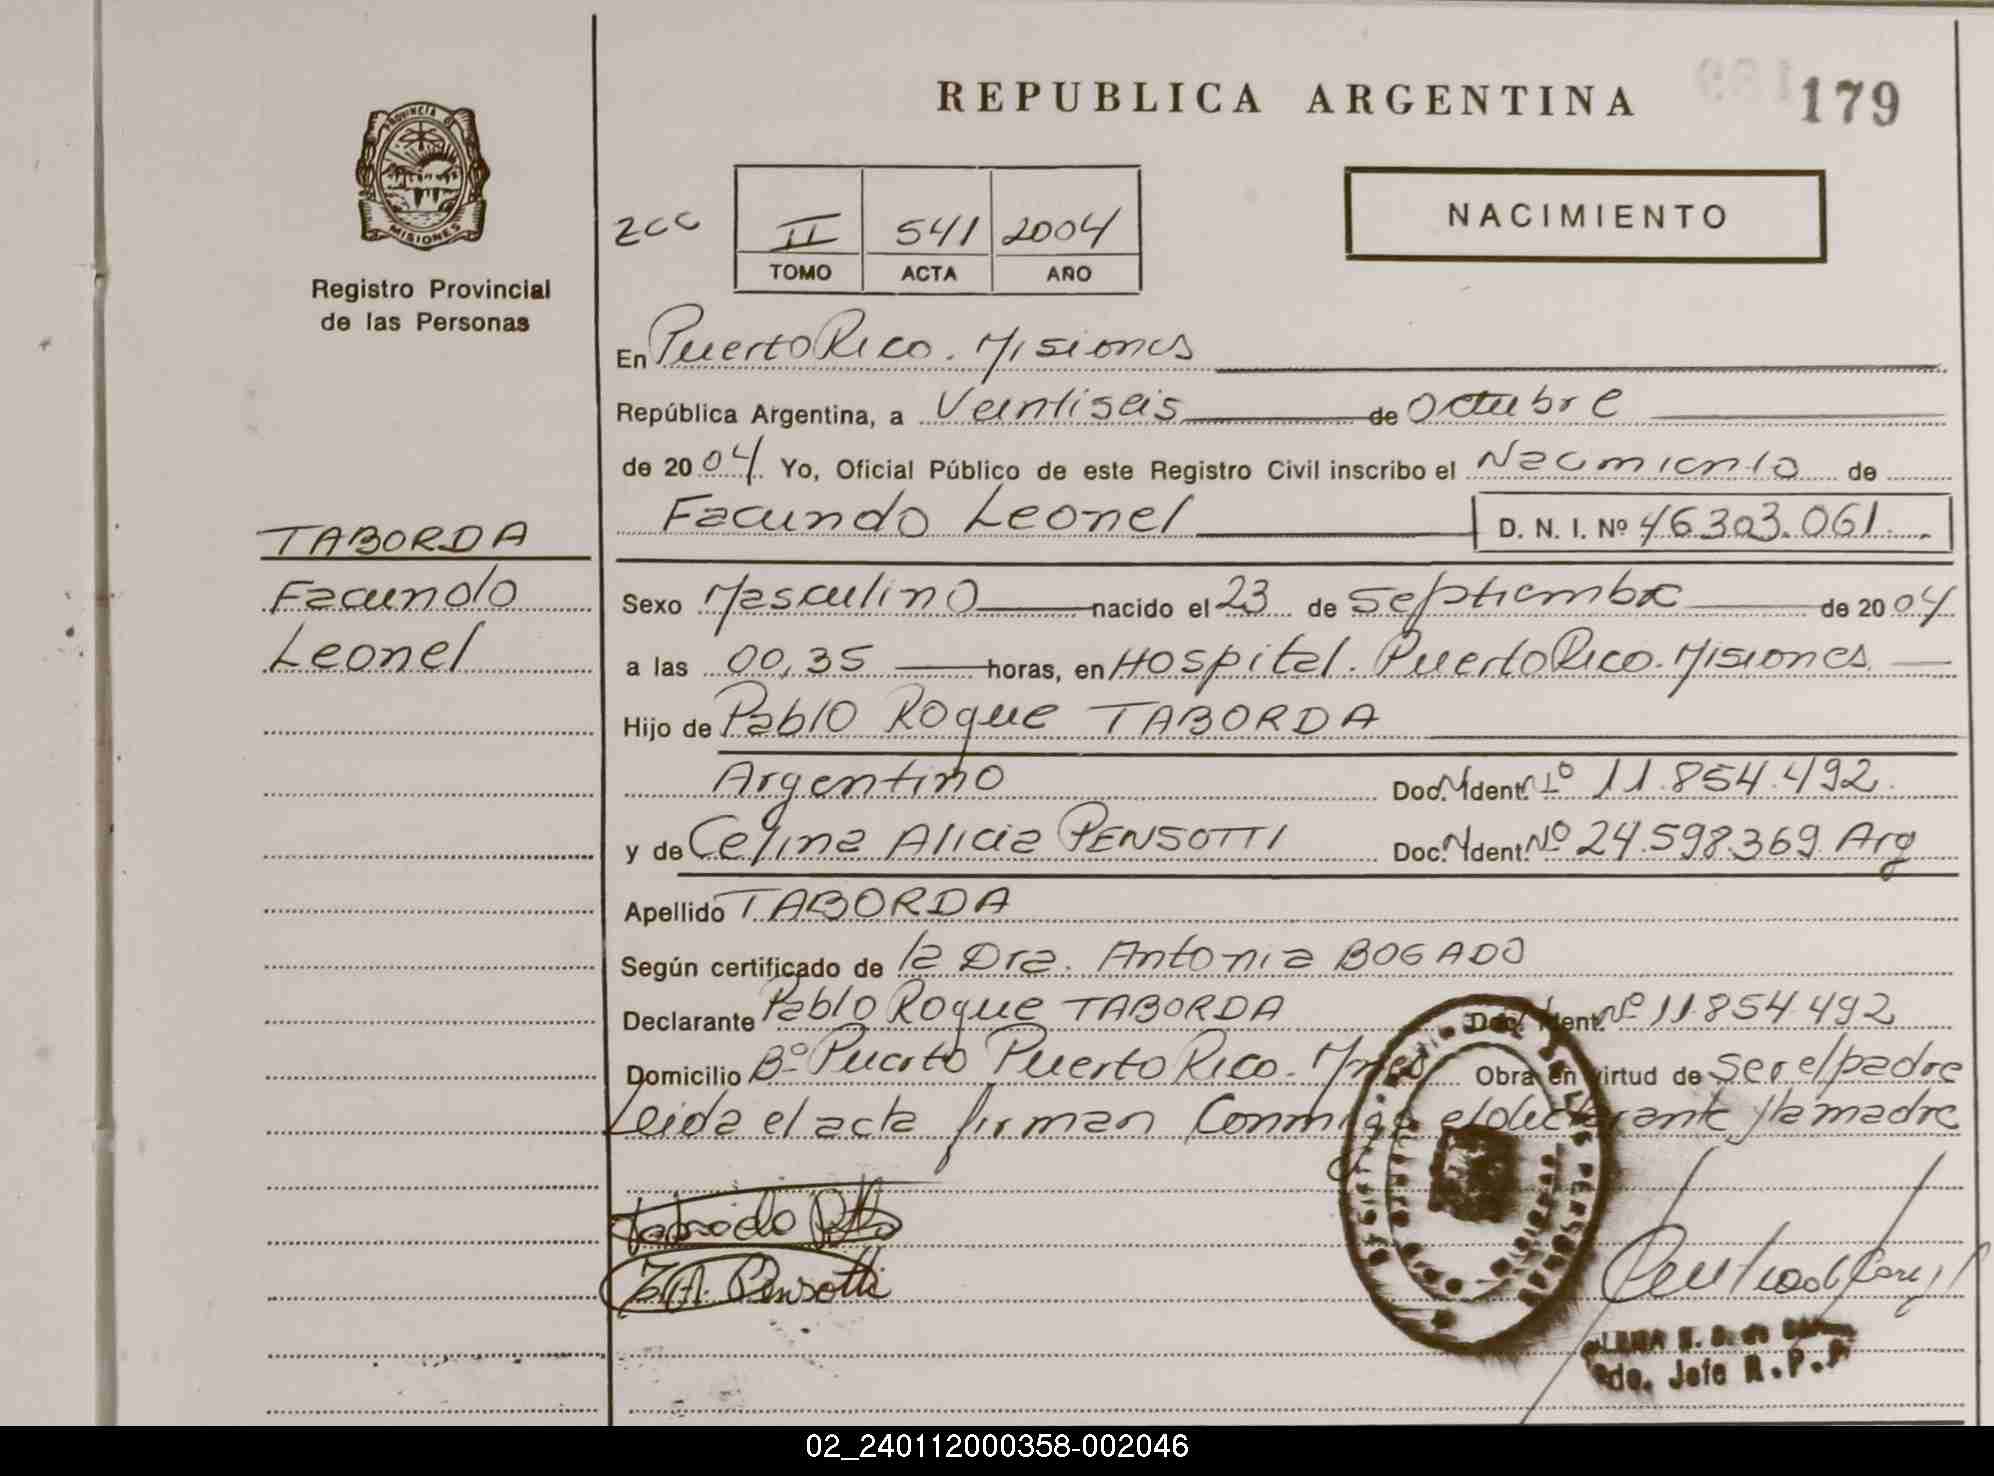 REPUBLICA ARGENTINA
179
PROVINCIA DE
MISIONES
Registro Provincial
de las Personas
2cc
II 541 2004
TOMO ACTA AÑO
NACIMIENTO
En Puerto Rico. Misiones
República Argentina, a Veintiseis de Octubre
de 2004. Yo, Oficial Público de este Registro Civil inscribo el Nacimiento de
Facundo Leonel D. N. I. Nº 46303.061
TABORDA
Facundo
Leonel
Sexo Masculino nacido el 23 de Septiembre de 2004
a las 00,35 horas, en Hospital. Puerto Rico. Misiones
Hijo de Pablo Roque TABORDA
Argentino Doc. Ident. Nº 11.854.492.
y de Celina Alicia PENSOTTI Doc. Ident. Nº 24.598.369 Arg
Apellido TABORDA
Según certificado de la Dra. Antonia BOGADO
Declarante Pablo Roque TABORDA Doc. Ident. Nº 11.854.492
Domicilio Bº Puerto Puerto Rico. Mnes Obra en virtud de ser el padre
Leida el acta firman Conmigo el declarante y la madre
Pensotti
Jefe R.P.P.
02_240112000358-002046